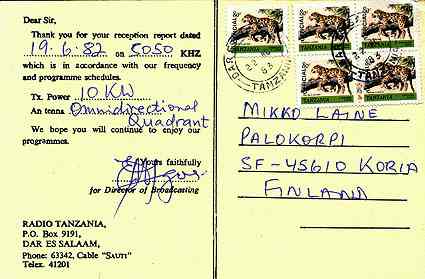 Dear Sir,
Thank you for your reception report dated
19.6.82 on 5050 KHZ
which is in accordance with our frequency
and programme schedules.
Tx. Power 10 KW
Antenna Omnidirectional
Quadrant
We hope you will continue to enjoy our
programmes.
Yours faithfully
for Director of Broadcasting
RADIO TANZANIA,
P.O. Box 9191,
DAR ES SALAAM,
Phone: 63342, Cable "SAUTI"
Telex. 41201
OFFICIAL
TANZANIA
TANZANIA
TANZANIA
MIKKO LAINE
PALOKORPI
SF-45610 KORIA
FINLAND